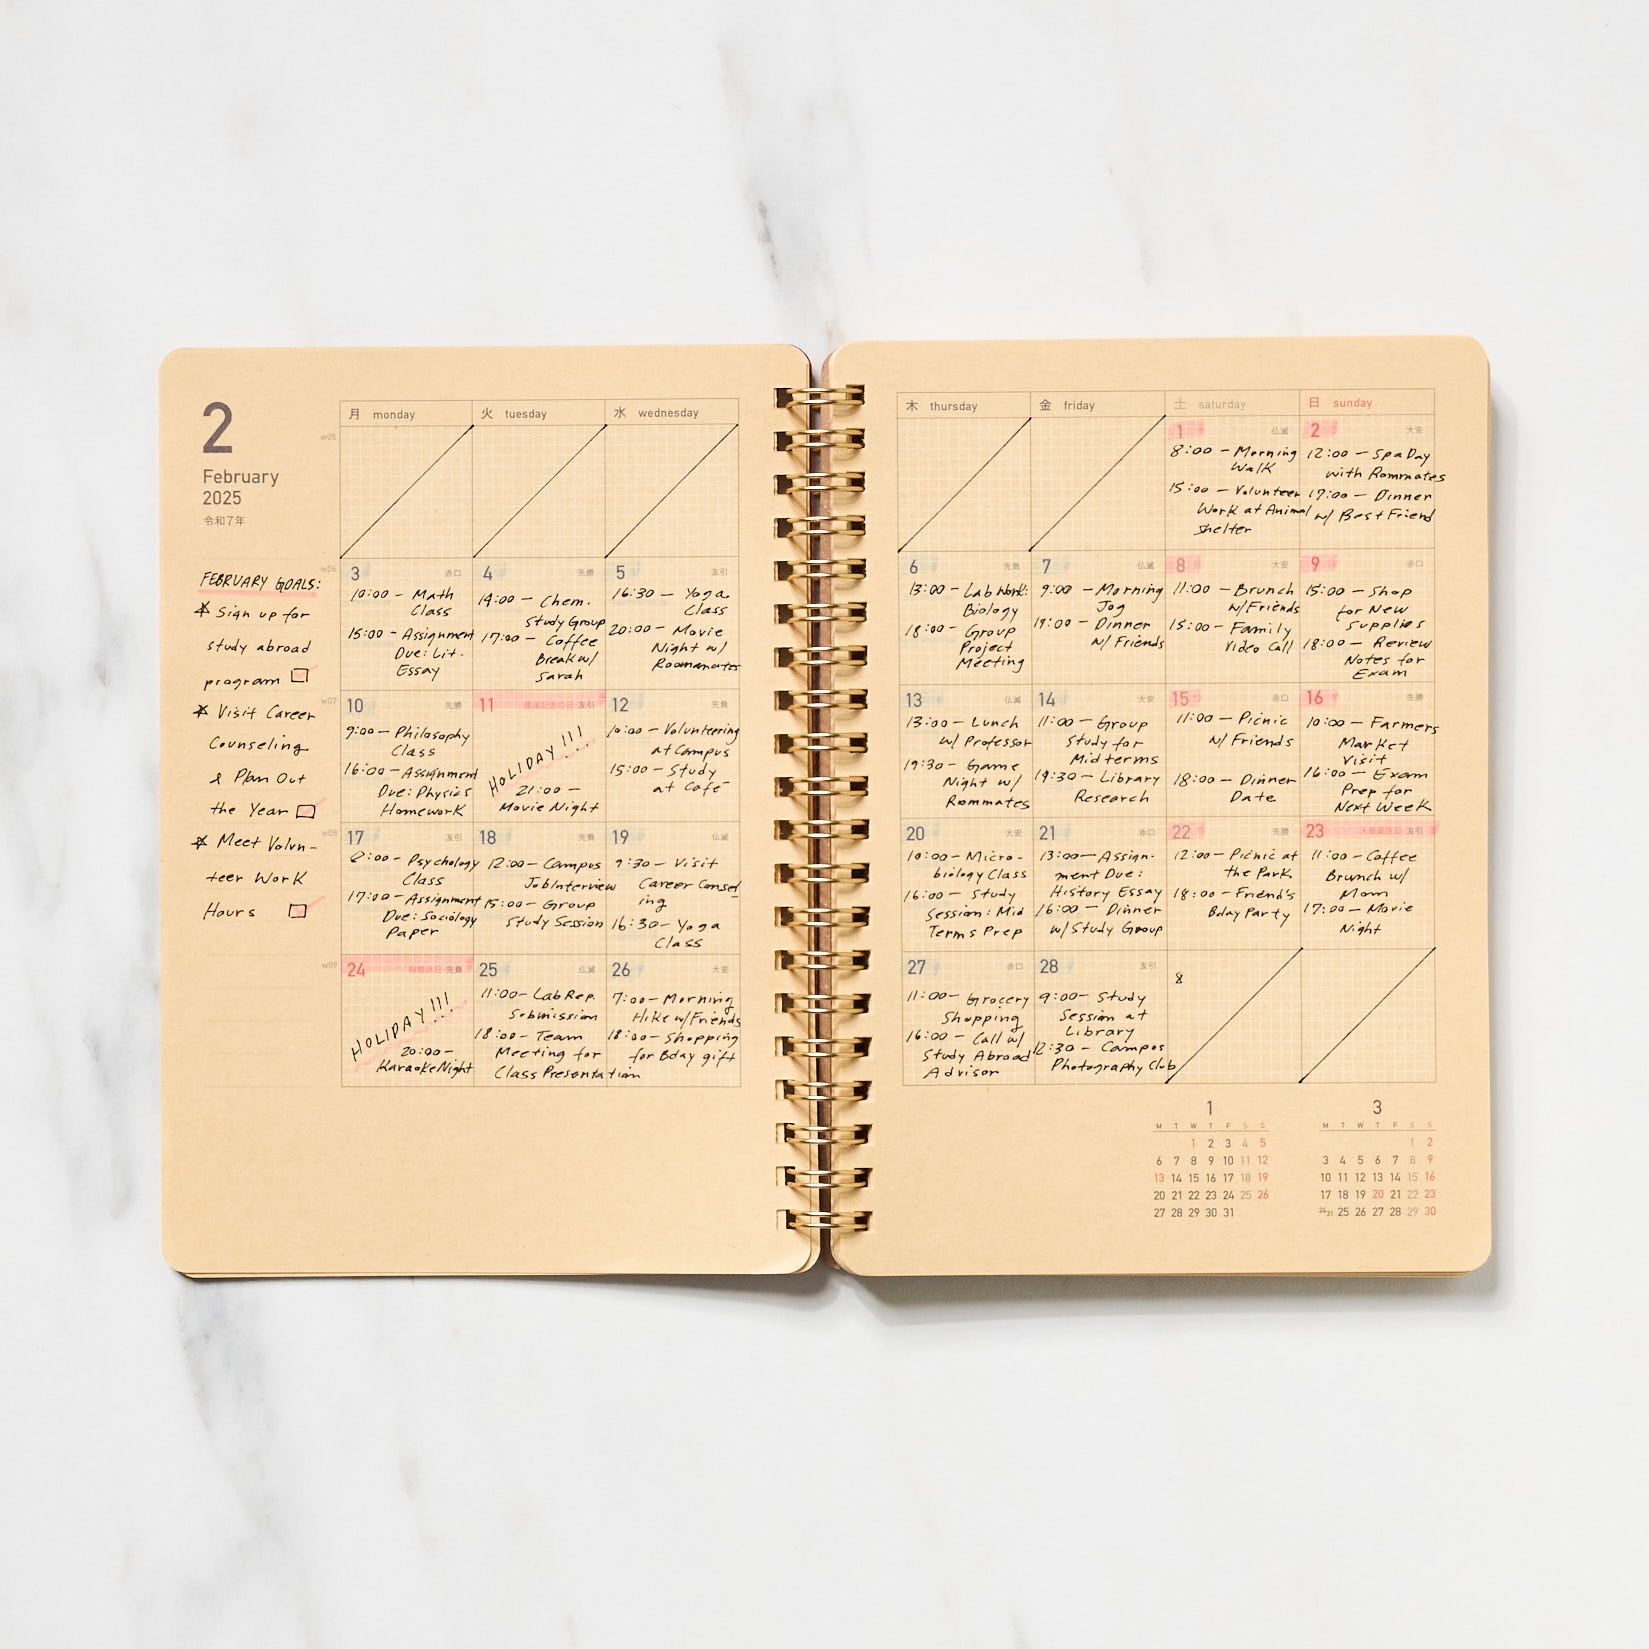 2
February
2025
令和7年
FEBRUARY GOALS:
☆ Sign up for
study abroad
program
☆ Visit Career
Counseling
& Plan Out
the Year
☆ Meet Volun-
teer Work
Hours
月 monday
火 tuesday
水 wednesday
w05
w06
3 赤口
10:00 - Math
Class
15:00 - Assignment
Due: Lit.
Essay
4 先勝
14:00 - Chem.
Study Group
17:00 - Coffee
Break w/
Sarah
5 友引
16:30 - Yoga
Class
20:00 - Movie
Night w/
Roomanates
w07
10 先勝
9:00 - Philosophy
Class
16:00 - Assignment
Due: Physics
Homework
11 建国記念の日 友引
HOLIDAY!!!
21:00 -
Movie Night
12 先負
10:00 - Volunteering
at Campus
15:00 - Study
at Cafe
w08
17 友引
8:00 - Psychology
Class
17:00 - Assignment
Due: Sociology
Paper
18 先負
12:00 - Campus
Job Interview
15:00 - Group
Study Session
19 仏滅
9:30 - Visit
Career Consel
ing
16:30 - Yoga
Class
w09
24 振替休日 先負
HOLIDAY!!!
20:00 -
Karaoke Night
25 仏滅
11:00 - Lab Rep.
Submission
18:00 - Team
Meeting for
Class Presentation
26 大安
7:00 - Morning
Hike w/Friends
18:00 - Shopping
for Bday gift
木 thursday
金 friday
土 saturday
日 sunday
1 仏滅
8:00 - Morning
Walk
15:00 - Volunteer
Work at Animal
Shelter
2 大安
12:00 - Spa Day
with Rommates
17:00 - Dinner
w/ Best Friend
6 先負
13:00 - Lab Work:
Biology
18:00 - Group
Project
Meeting
7 仏滅
9:00 - Morning
Jog
19:00 - Dinner
w/ Friends
8 大安
11:00 - Brunch
w/Friends
15:00 - Family
Video Call
9 赤口
15:00 - Shop
for New
Supplies
18:00 - Review
Notes for
Exam
13 仏滅
13:00 - Lunch
w/ Professor
19:30 - Game
Night w/
Rommates
14 大安
11:00 - Group
Study for
Midterms
19:30 - Library
Research
15 赤口
11:00 - Picnic
w/ Friends
18:00 - Dinner
Date
16 先勝
10:00 - Farmers
Market
Visit
16:00 - Exam
Prep for
Next Week
20 大安
10:00 - Micro-
biology Class
16:00 - Study
Session: Mid
Terms Prep
21 赤口
13:00 - Assign-
ment Due:
History Essay
16:00 - Dinner
w/ Study Group
22 先勝
12:00 - Picnic at
the Park
18:00 - Friend's
Bday Party
23 天皇誕生日 友引
11:00 - Coffee
Brunch w/
Mom
17:00 - Movie
Night
27 赤口
11:00 - Grocery
Shopping
16:00 - Call w/
Study Abroad
Advisor
28 友引
9:00 - Study
Session at
Library
12:30 - Campos
Photography Club
8
1
M T W T F S S
1 2 3 4 5
6 7 8 9 10 11 12
13 14 15 16 17 18 19
20 21 22 23 24 25 26
27 28 29 30 31
3
M T W T F S S
1 2
3 4 5 6 7 8 9
10 11 12 13 14 15 16
17 18 19 20 21 22 23
24/31 25 26 27 28 29 30